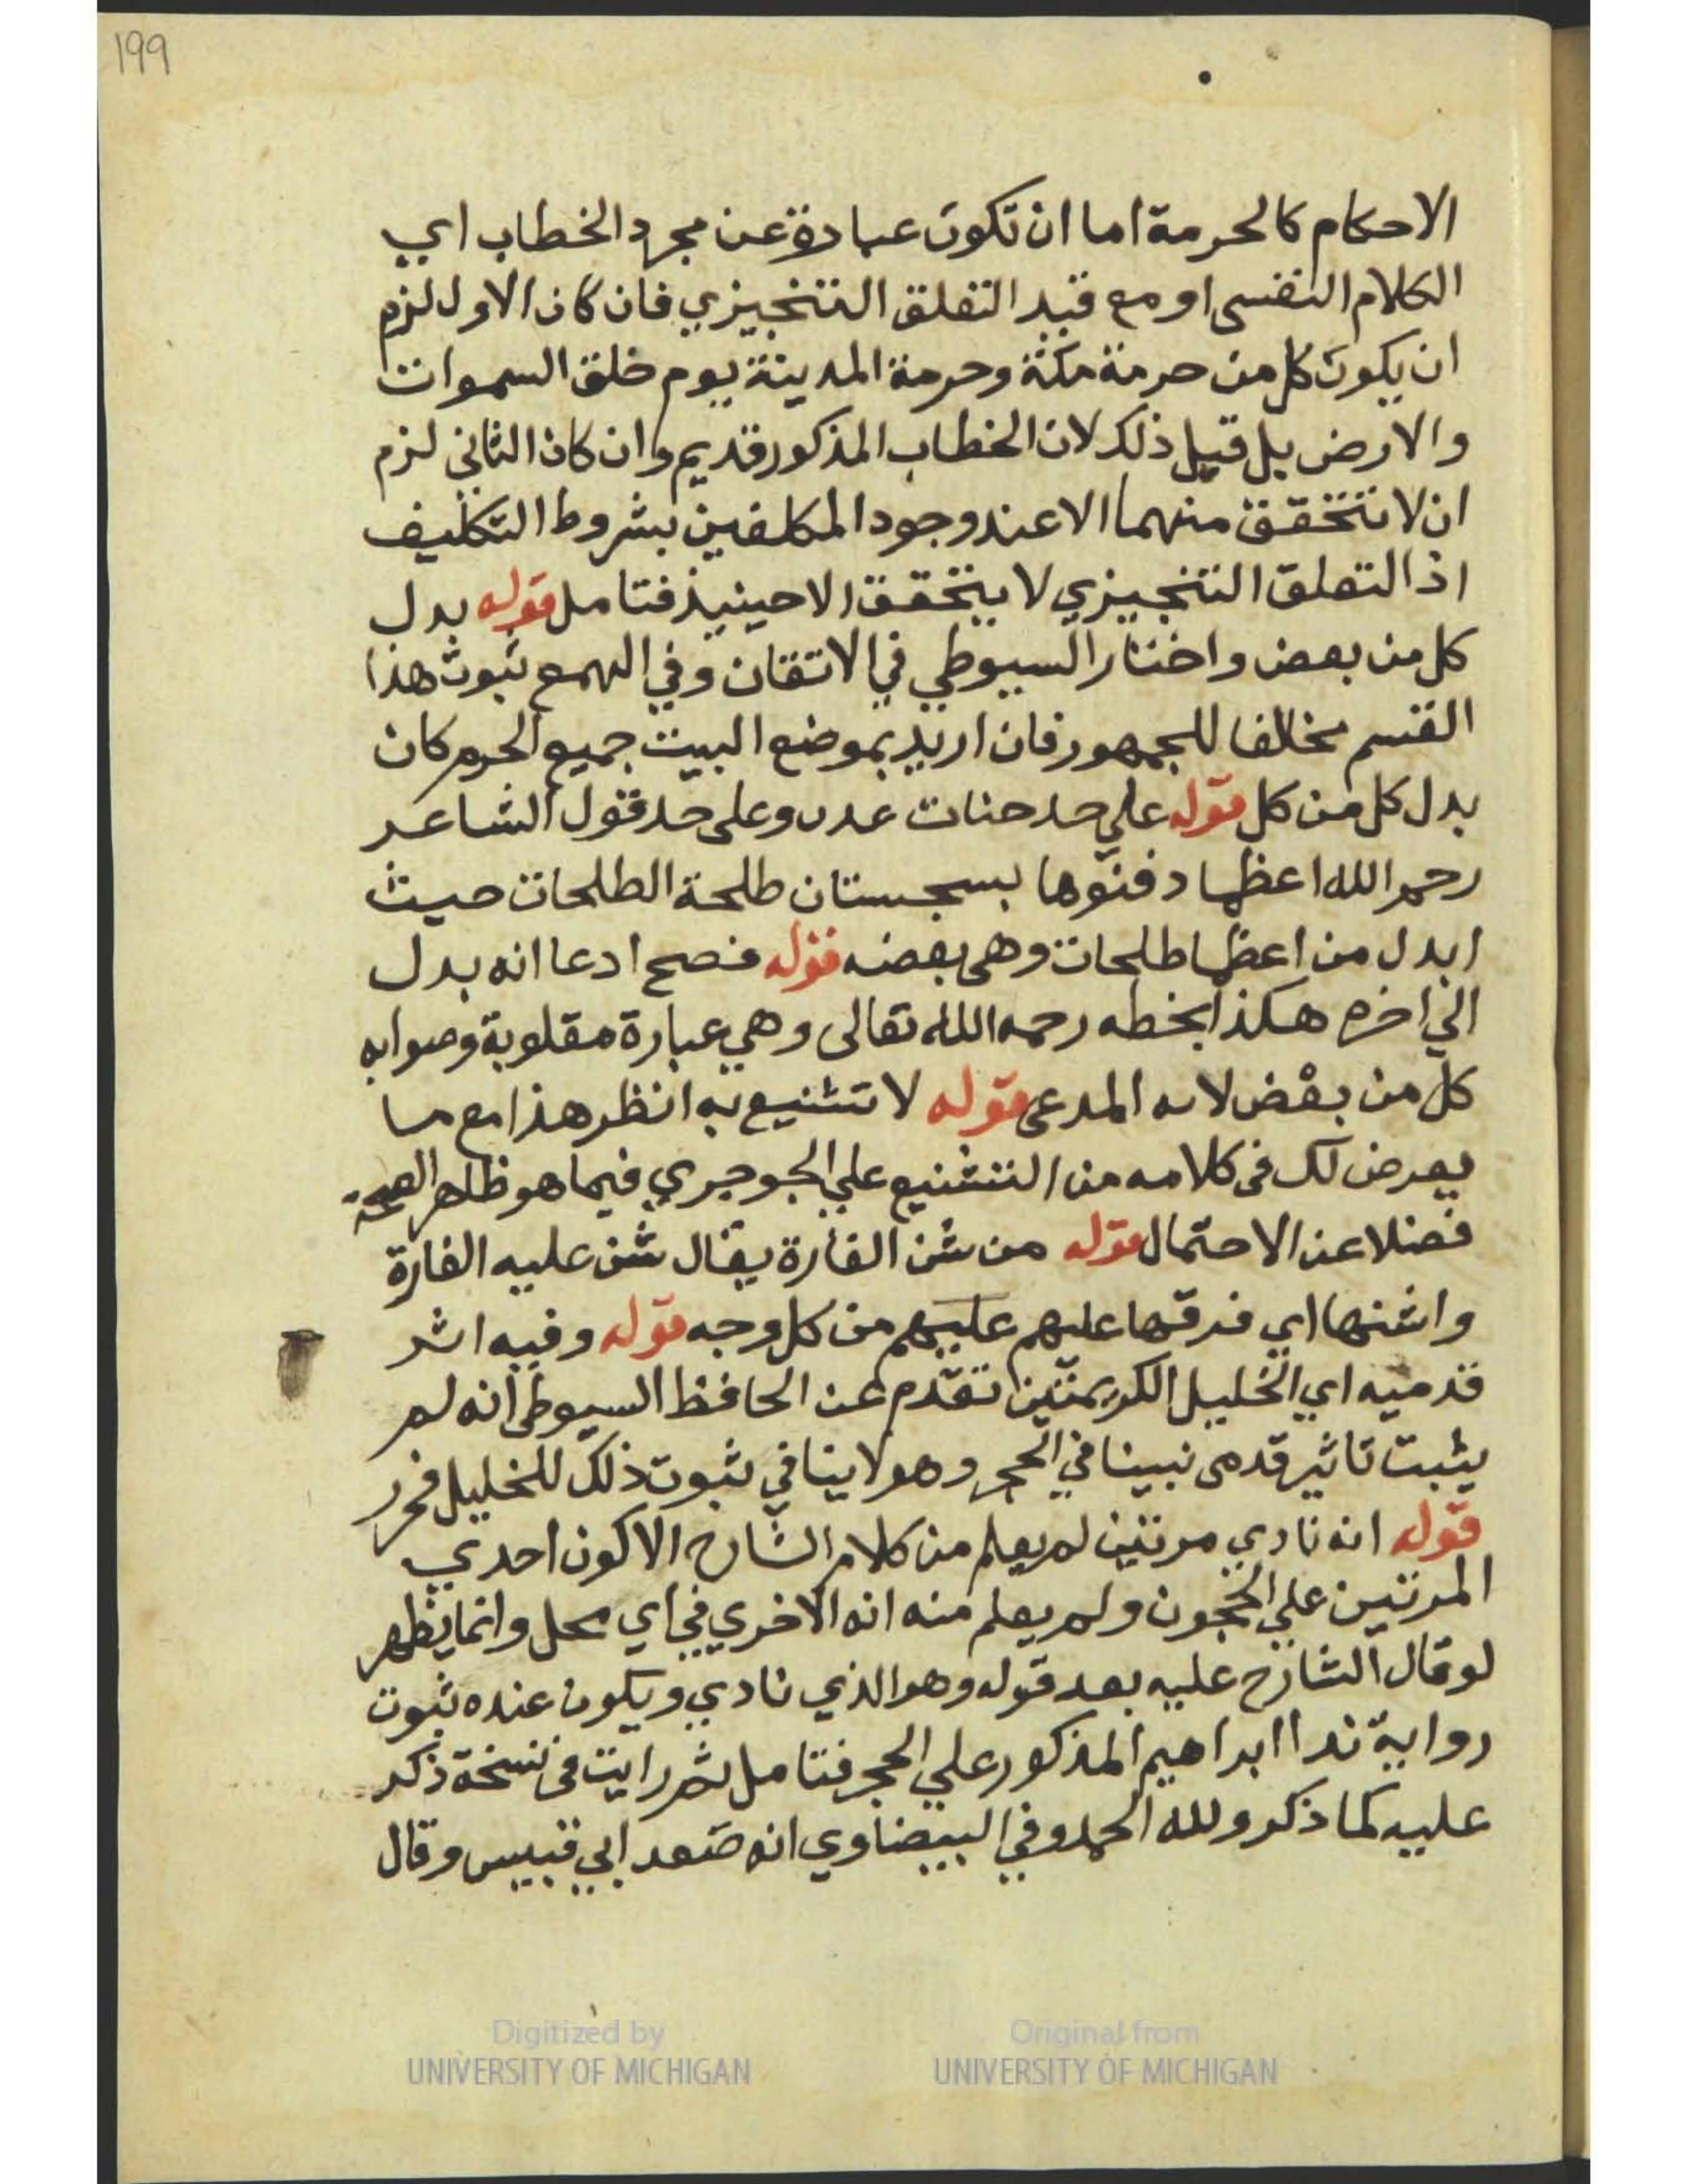 199
الاحكام كالحرمة اما ان تكون عبارة عن مجرد الخطاب اي
الكلام النفسى او مع قيد التعلق التنجيزي فان كان الاول لزم
ان يكون كل من حرمة مكة وحرمة المدينة يوم خلق السموات
والارض بل قبل ذلك لان الخطاب المذكور قديم وان كان الثانى لزم
ان لا تتحقق منهما الا عند وجود المكلفين بشروط التكليف
اذ التعلق التنجيزي لا يتحقق الا حينيذ فتامل قوله بدل
كل من بعض واختار السيوطي في الاتقان وفي الهمع ثبوت هذا
القسم مخالفا للجمهور فان اريد بموضع البيت جميع الحرم كان
بدل كل من كل قوله علي حد جنات عدن وعلى حد قول الشاعر
رحم الله اعظما دفنوها بسجستان طلحة الطلحات حيث
ابدل من اعظما طلحات وهى بعضه قوله فصح ادعا انه بدل
الي اخره هكذا بخطه رحمه الله تعالى وهي عبارة مقلوبة وصوابه
كل من بعض لانه المدعى قوله لا تشنيع به انظر هذا مع ما
يعرض لك فى كلامه من التشنيع علي الجوجري فيما هو ظاهر الصحة
فضلا عن الاحتمال قوله من شن الغارة يقال شن عليه الغارة
واشنها اي فرقها عليهم عليهم من كل وجه قوله وفيه اثر
قدميه اي الخليل الكريمتين تقدم عن الحافظ السيوطى انه لم
يثبت تاثير قدمى نبينا في الحجر وهو لا ينافي ثبوت ذلك للخليل فحرر
قوله انه نادي مرتين لم يعلم من كلام الشارح الا كون احدي
المرتين علي الحجون ولم يعلم منه انه الاخري في اي محل وانما يظهر
لو قال الشارح عليه بعد قوله وهو الذي نادي ويكون عنده ثبوت
رواية ندا ابراهيم المذكور علي الحجر فتامل ثم رايت فى نسخة ذكر
عليه كما ذكر ولله الحمد وفي البيضاوي انه صعد ابي قبيس وقال
Digitized by
UNIVERSITY OF MICHIGAN
Original from
UNIVERSITY OF MICHIGAN